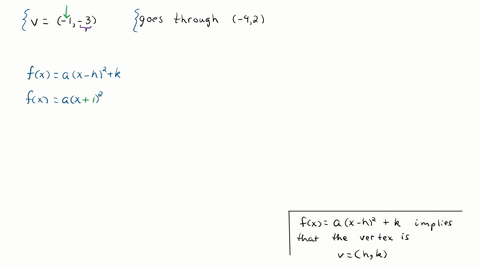 {v = (-1,-3) {goes through (-4,2)
f(x) = a(x-h)²+k
f(x) = a(x+1)²
f(x) = a(x-h)² + k implies
that the vertex is
v=(h,k)